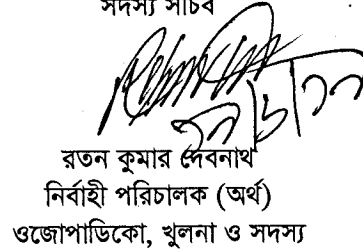 সদস্য সচিব
রতন কুমার দেবনাথ
নির্বাহী পরিচালক (অর্থ)
ওজোপাডিকো, খুলনা ও সদস্য